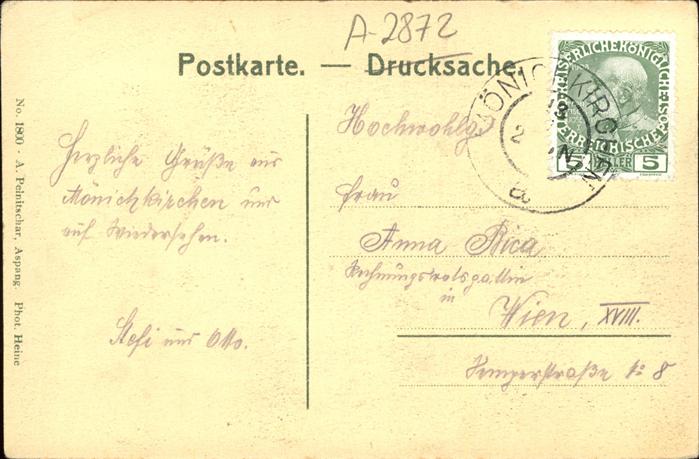 A-2872
Postkarte. — Drucksache.
KAISERLICHE KÖNIGLICHE
ÖSTERREICHISCHE POST
5 HELLER 5
MÖNICHKIRCHEN
Herzliche Grüße aus
Mönichkirchen und
auf Wiedersehen.
Stefi und Otto.
Hochwohlg.
Frau
Anna Bica
Rechnungsratsgattin
in
Wien, XVIII.
Semperstraße No 8
No. 1800 · A. Peinitschar, Aspang. Phot. Heine